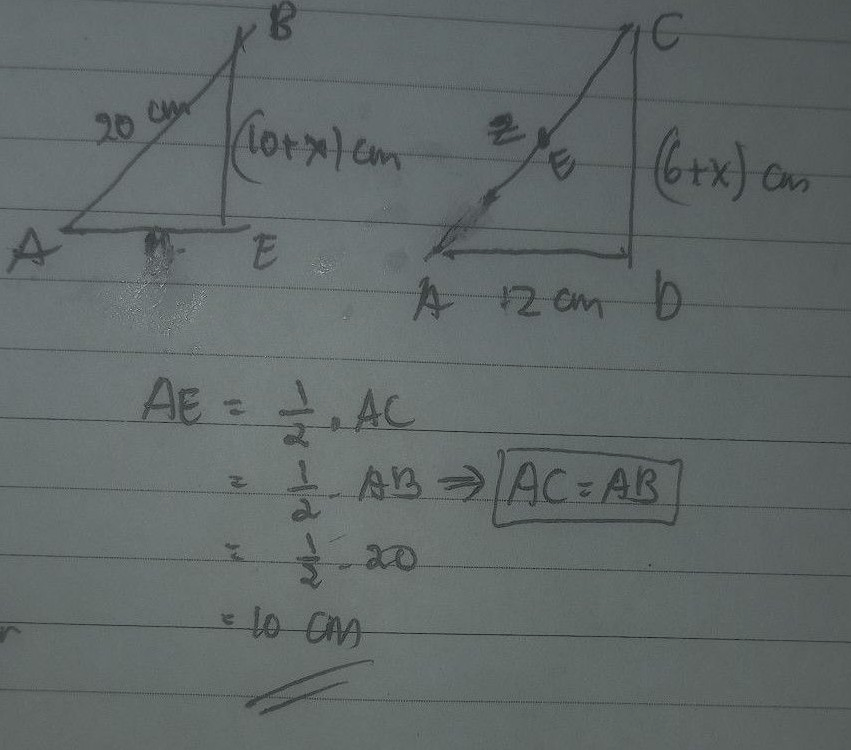 B
C
20 cm
(10+x) cm
z
E
(6+x) cm
A
E
A
12 cm
D
AE = 1/2 . AC
= 1/2 . AB ⇒ AC = AB
= 1/2 . 20
= 10 cm